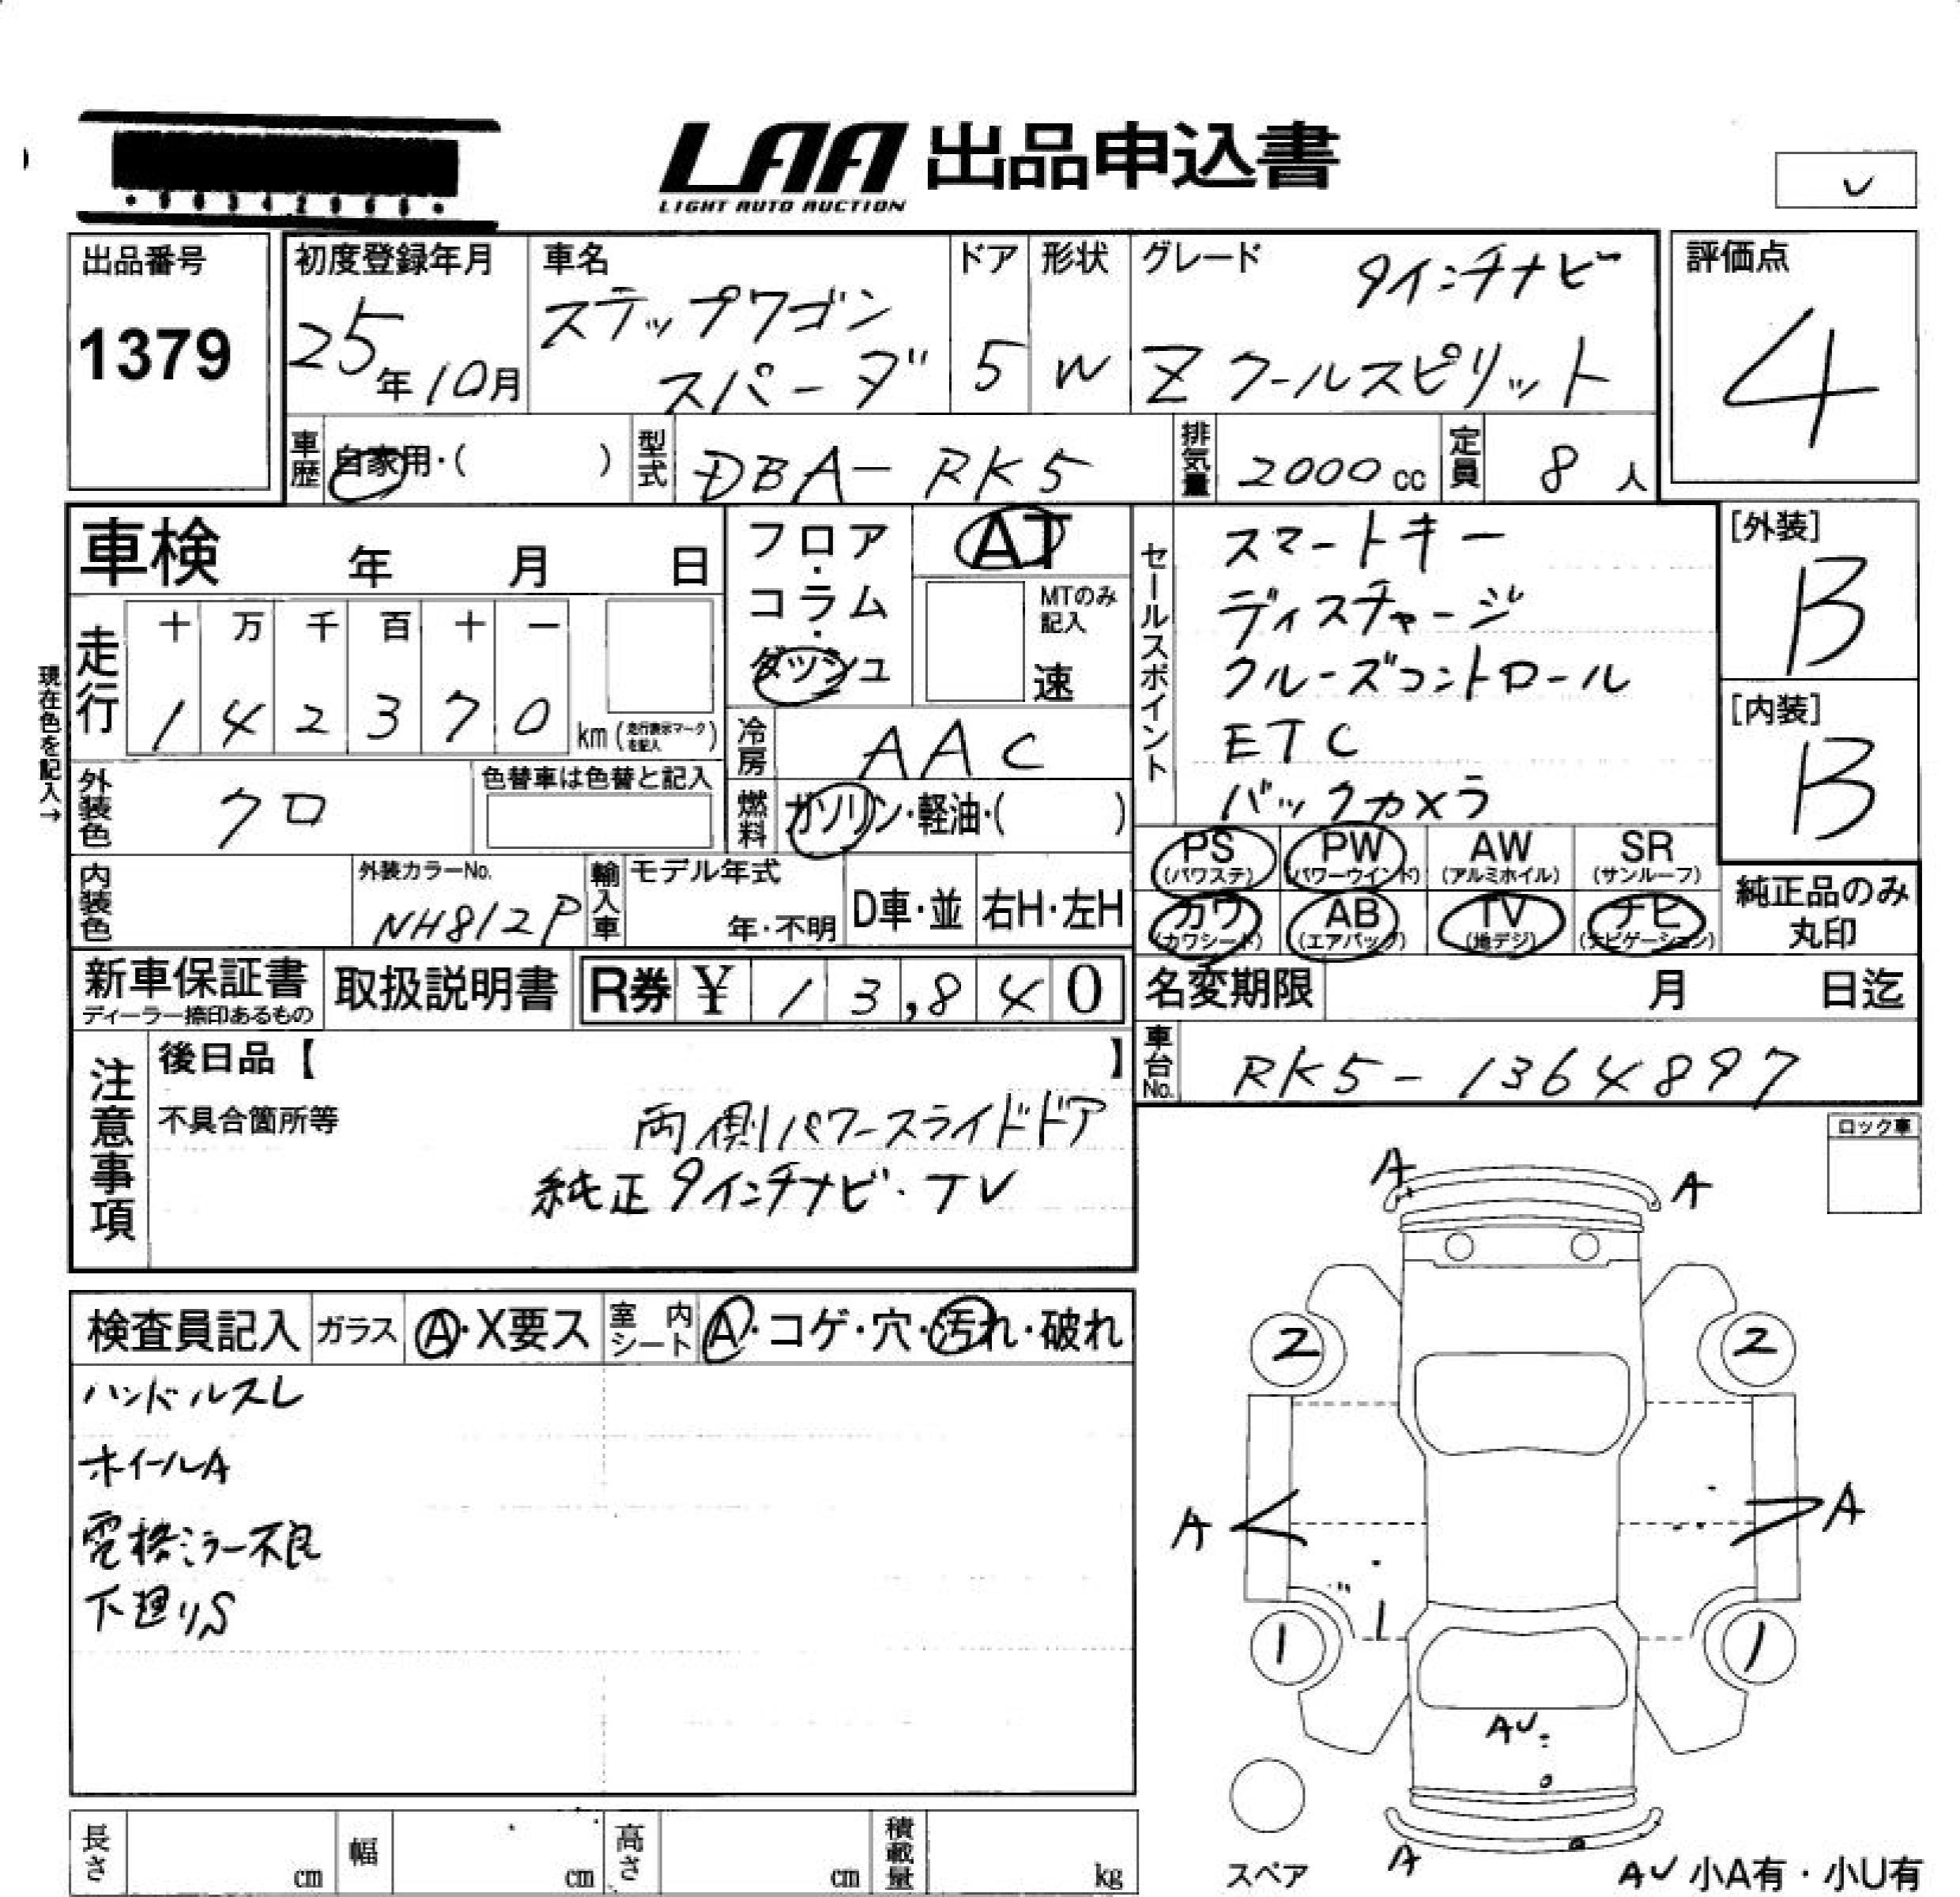 LAA 出品申込書
LIGHT AUTO AUCTION
出品番号
1379
初度登録年月
25年10月
車名
ステップワゴン
スパーダ
ドア
5
形状
W
グレード
9インチナビ
Z クールスピリット
評価点
4
車歴 自家用・( )
型式 DBA-RK5
排気量 2000cc
定員 8人
車検 年 月 日
フロア・コラム・ダッシュ
AT
MTのみ記入
速
セールスポイント
スマートキー
ディスチャージ
クルーズコントロール
ETC
バックカメラ
[外装]
B
[内装]
B
現在色を記入→
走行
十 万 千 百 十 一
1 4 2 3 7 0 km (走行表示マークを記入)
冷房 AAC
外装色 クロ
色替車は色替と記入
燃料 ガソリン・軽油・( )
PS (パワステ)
PW (パワーウインド)
AW (アルミホイル)
SR (サンルーフ)
カワ (カワシート)
AB (エアバック)
TV (地デジ)
ナビ (ナビゲーション)
純正品のみ
丸印
内装色
外装カラーNo.
NH812P
輸入車
モデル年式
年・不明
D車・並
右H・左H
新車保証書
ディーラー捺印あるもの
取扱説明書
R券 ¥ 13,840
名変期限 月 日迄
車台No. RK5-1364897
注意事項
後日品【 】
不具合箇所等
両側パワースライドドア
純正9インチナビ・TV
ロック車
検査員記入
ガラス A・X要ス
室内シート A・コゲ・穴・汚れ・破れ
ハンドルスレ
ホイールA
電格ミラー不良
下廻りS
A
A
2
2
A
A
1
1
AU
A
スペア
AU 小A有・小U有
長さ cm
幅 cm
高さ cm
積載量 kg